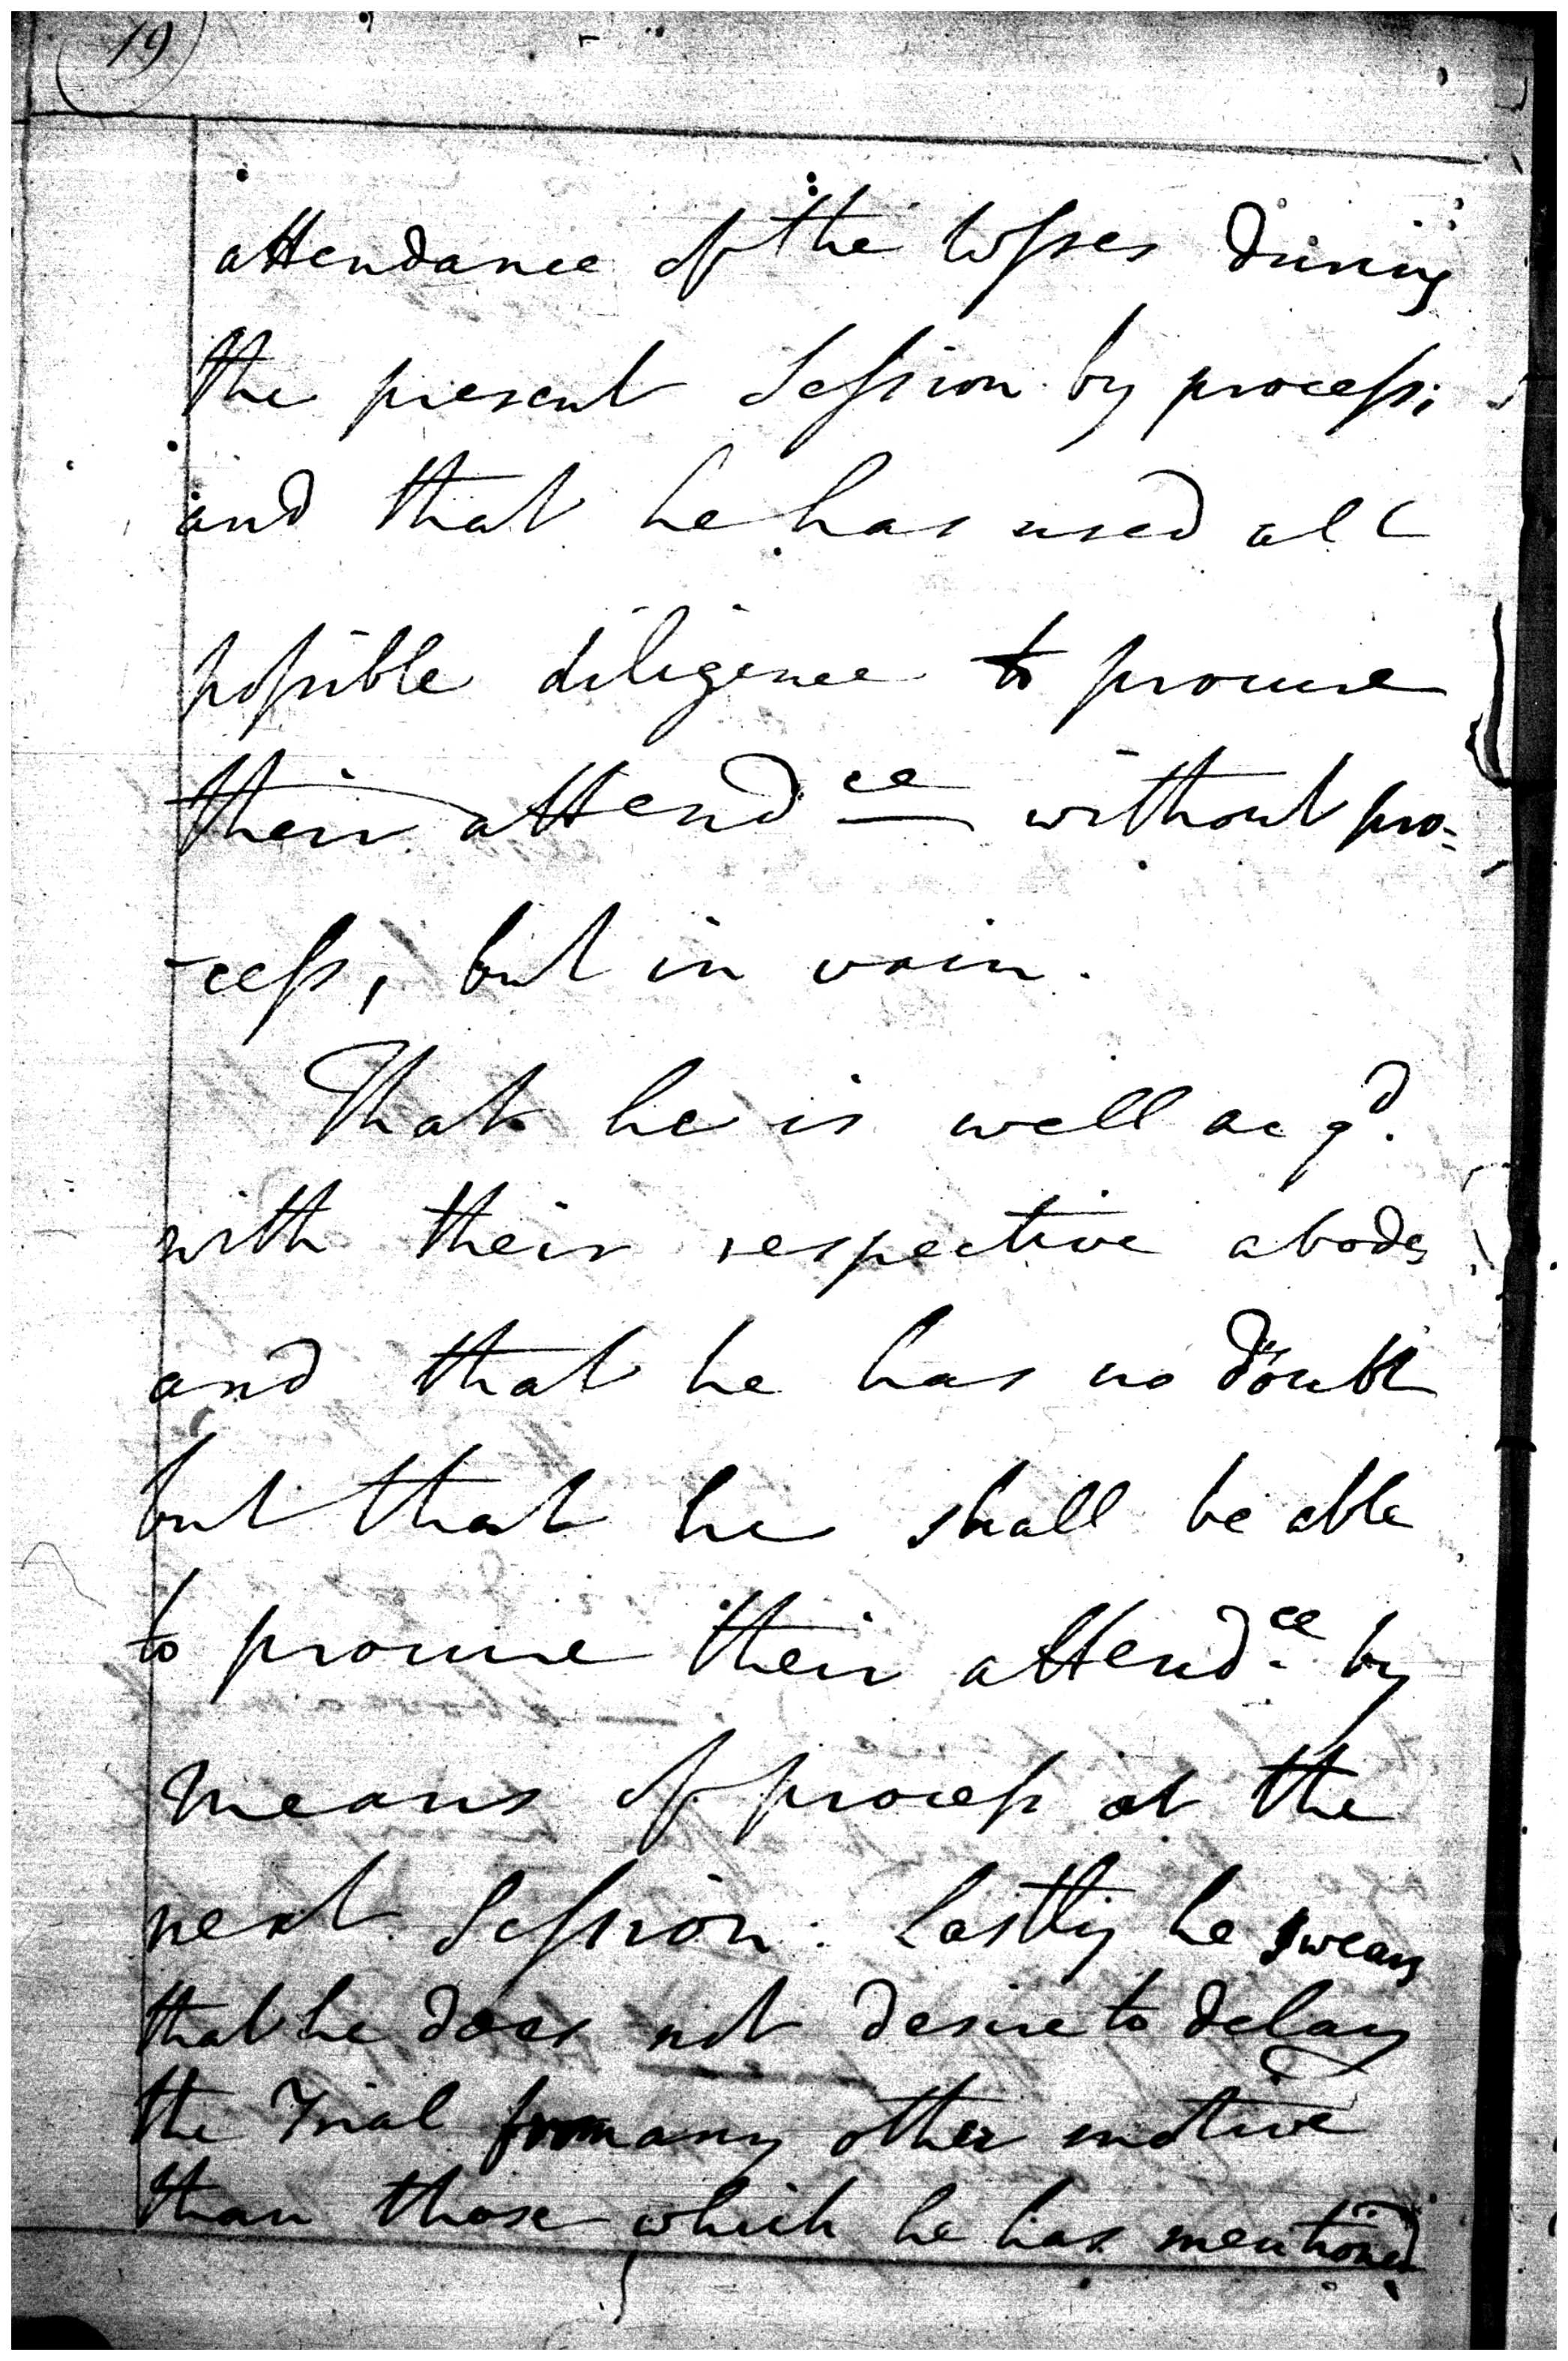 19
attendance of the Wſses during
the present Seſsion by proceſs;
and that he has used all
poſsible diligence to procure
their attend^ce without pro=
-ceſs, but in vain.
That he is well acq^d.
with their respective abodes
and that he has no doubt
but that he shall be able
to procure their attend^ce by
means of proceſs at the
next Seſsion. Lastly he swears
that he does not desire to delay
the Trial from any other motive
than those which he has mentioned